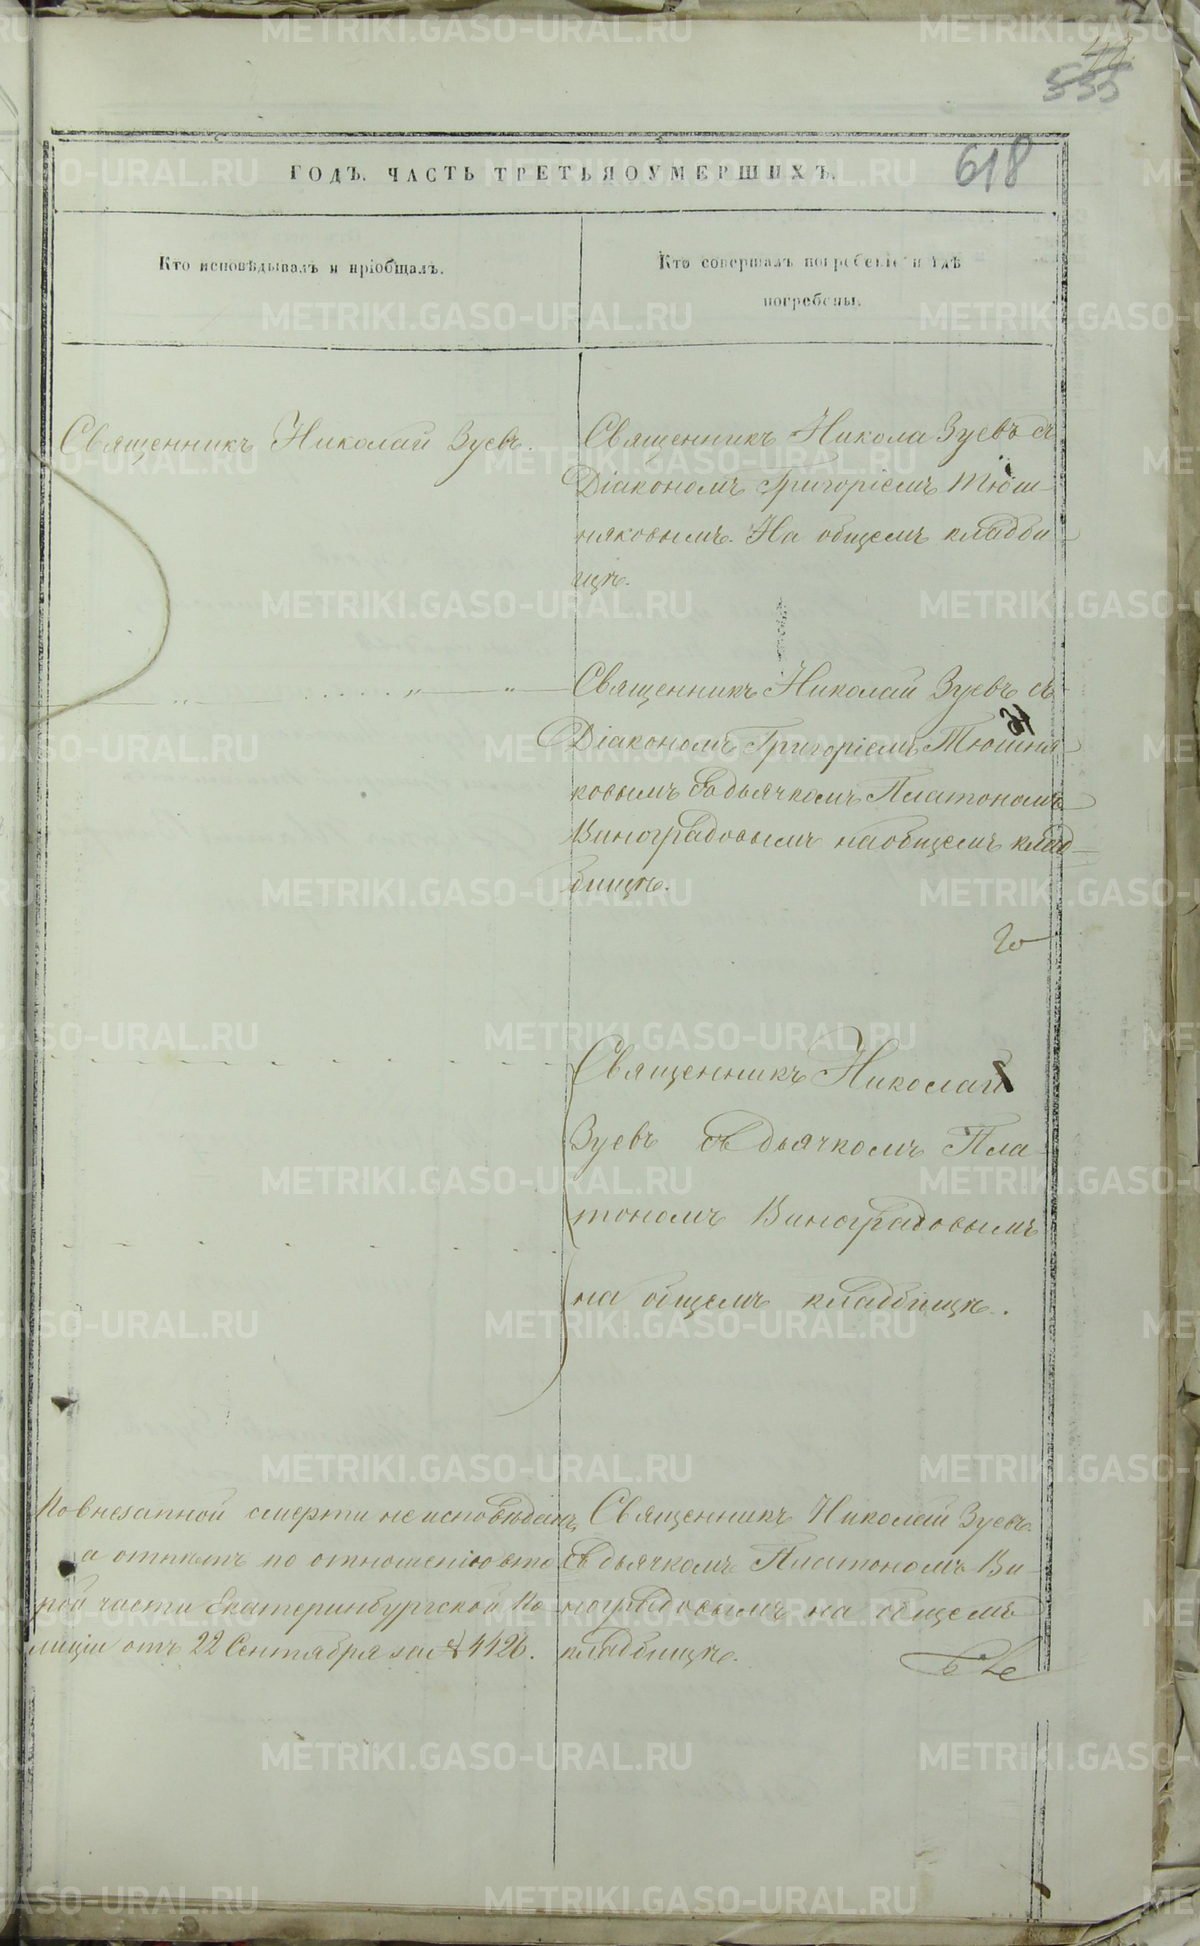 42.
535
618
ГОДЪ. ЧАСТЬ ТРЕТЬЯ О УМЕРШИХЪ.
Кто исповѣдывалъ и пріобщалъ.
Кто совершалъ погребеніе и гдѣ
погребены.
Священникъ Николай Зуевъ.
Священникъ Никола Зуевъ съ
Діакономъ Григоріемъ Тюш-
няковымъ. На общемъ кладби-
щѣ.
Священникъ Николай Зуевъ съ
Діакономъ Григоріемъ Тюшня-
ковымъ съ дьячкомъ Платономъ
Виноградовымъ на общемъ клад-
бищѣ.
Священникъ Николай
Зуевъ съ дьячкомъ Пла-
тономъ Виноградовымъ
на общемъ кладбищѣ.
По внезапной смерти не исповѣданъ,
а отпѣтъ по отношенію вто
рой части Екатеринбургской По
лиціи отъ 22 Сентября за № 4426.
Священникъ Николай Зуевъ
съ дьячкомъ Платономъ Ви-
ноградовымъ на общемъ
кладбищѣ.
METRIKI.GASO-URAL.RU